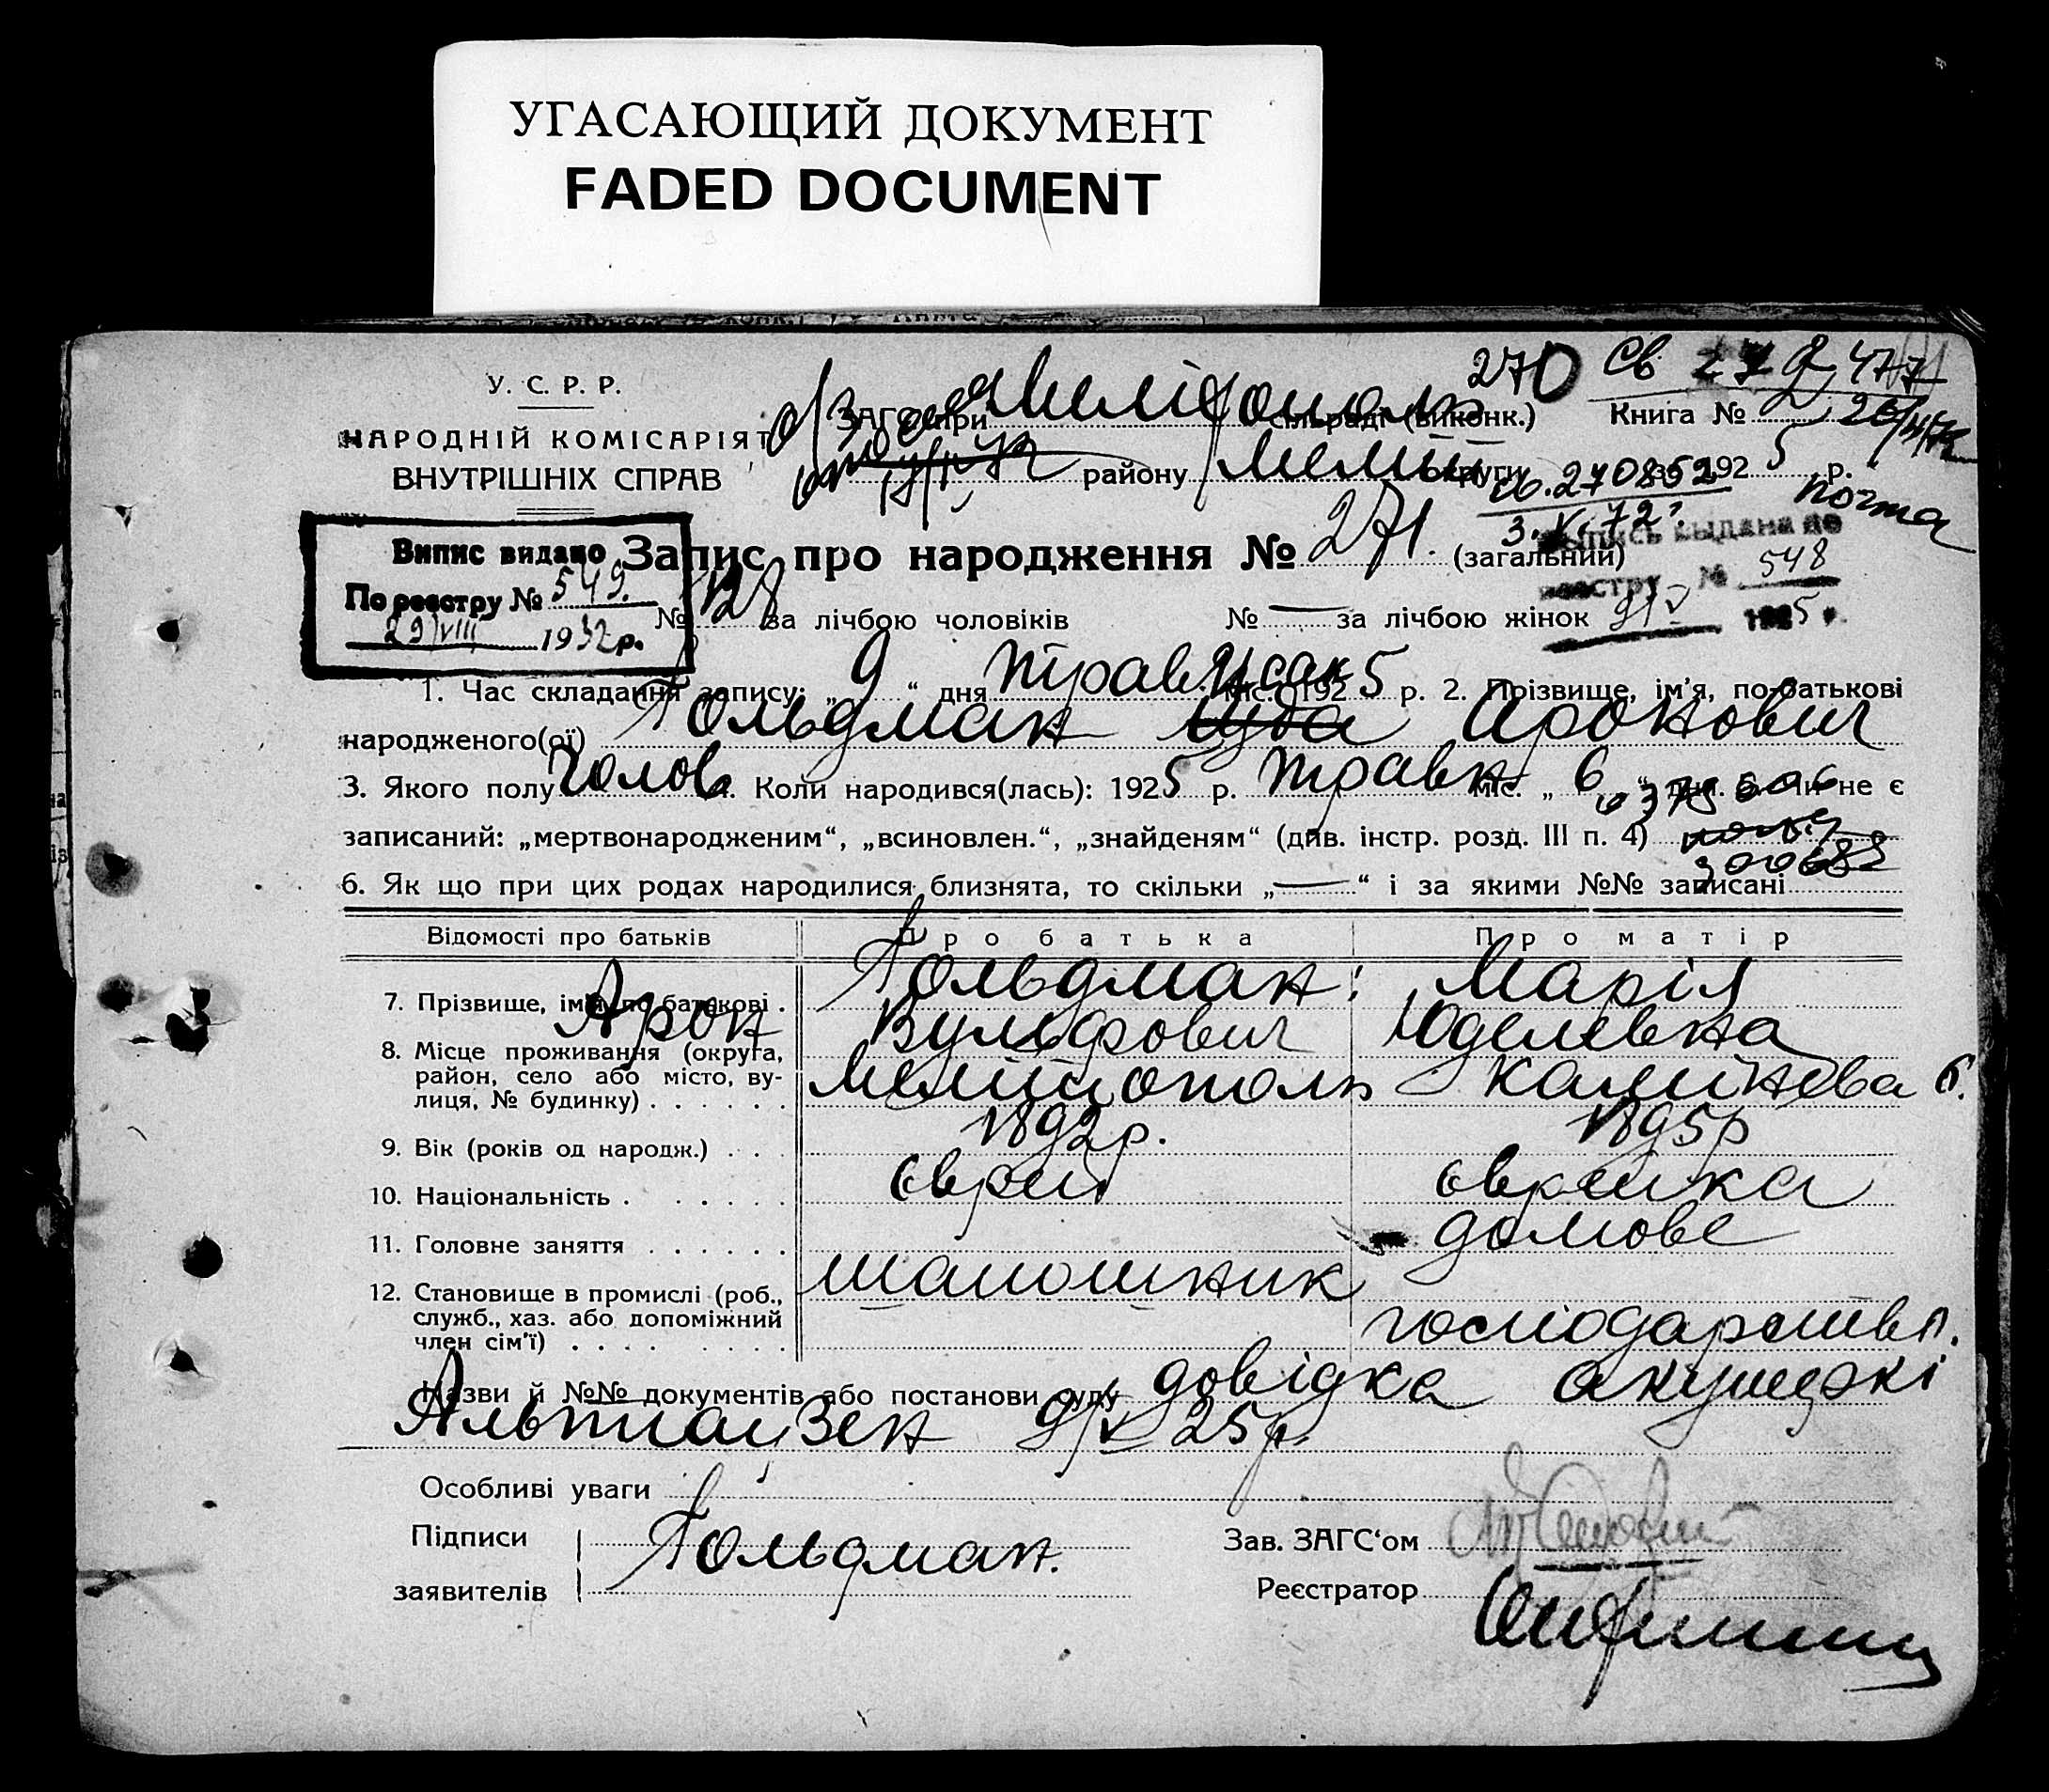 УГАСАЮЩИЙ ДОКУМЕНТ
FADED DOCUMENT
270
Св
У. С. Р. Р.
НАРОДНІЙ КОМІСАРІЯТ
ВНУТРІШНІХ СПРАВ
ЗАГС при сільраді (виконк.) Книга № 2
району округи 1925 р.
св. 270852
3.V.72
почта
Випис видано
По реєстру № 549.
29/VIII 1932 р.
Запис про народження № 271. (загальний)
выдана по
реестру № 548
№ 128 за лічбою чоловіків № — за лічбою жінок
1. Час складання запису: „ 9 “ дня трав міс. 1925 р. 2. Прізвище, ім'я, по-батькові
Исак
народженого(ої) Гольдман Аронович
3. Якого полу чолов. Коли народився(лась): 1925 р. травн міс. „ 6 “ дня. 5. Чи не є
записаний: „мертвонародженим“, „всиновлен.“, „знайденям“ (див. інстр. розд. III п. 4)
6. Як що при цих родах народилися близнята, то скільки „—“ і за якими №№ записані
Відомості про батьків Про батька Про матір
7. Прізвище, ім'я, по батькові . Гольдман: Марія
Арон Вульфович Юделевна
8. Місце проживання (округа,
район, село або місто, ву-
лиця, № будинку) . . . . . . Мелітополь Калінєва 6.
9. Вік (років од народж.) . . . 1892р. 1895р
10. Національність . . . . . . єврей єврейка
11. Головне заняття . . . . . . домове
12. Становище в промислі (роб.,
служб., хаз. або допоміжний
член сім'ї) . . . . . . . . шапошник господарство.
Назви й №№ документів або постанови суду довідка акушеркі
Альтгаузен 9/V 25р.
Особливі уваги
Підписи
заявителів Гольдман.
Зав. ЗАГС'ом
Реєстратор